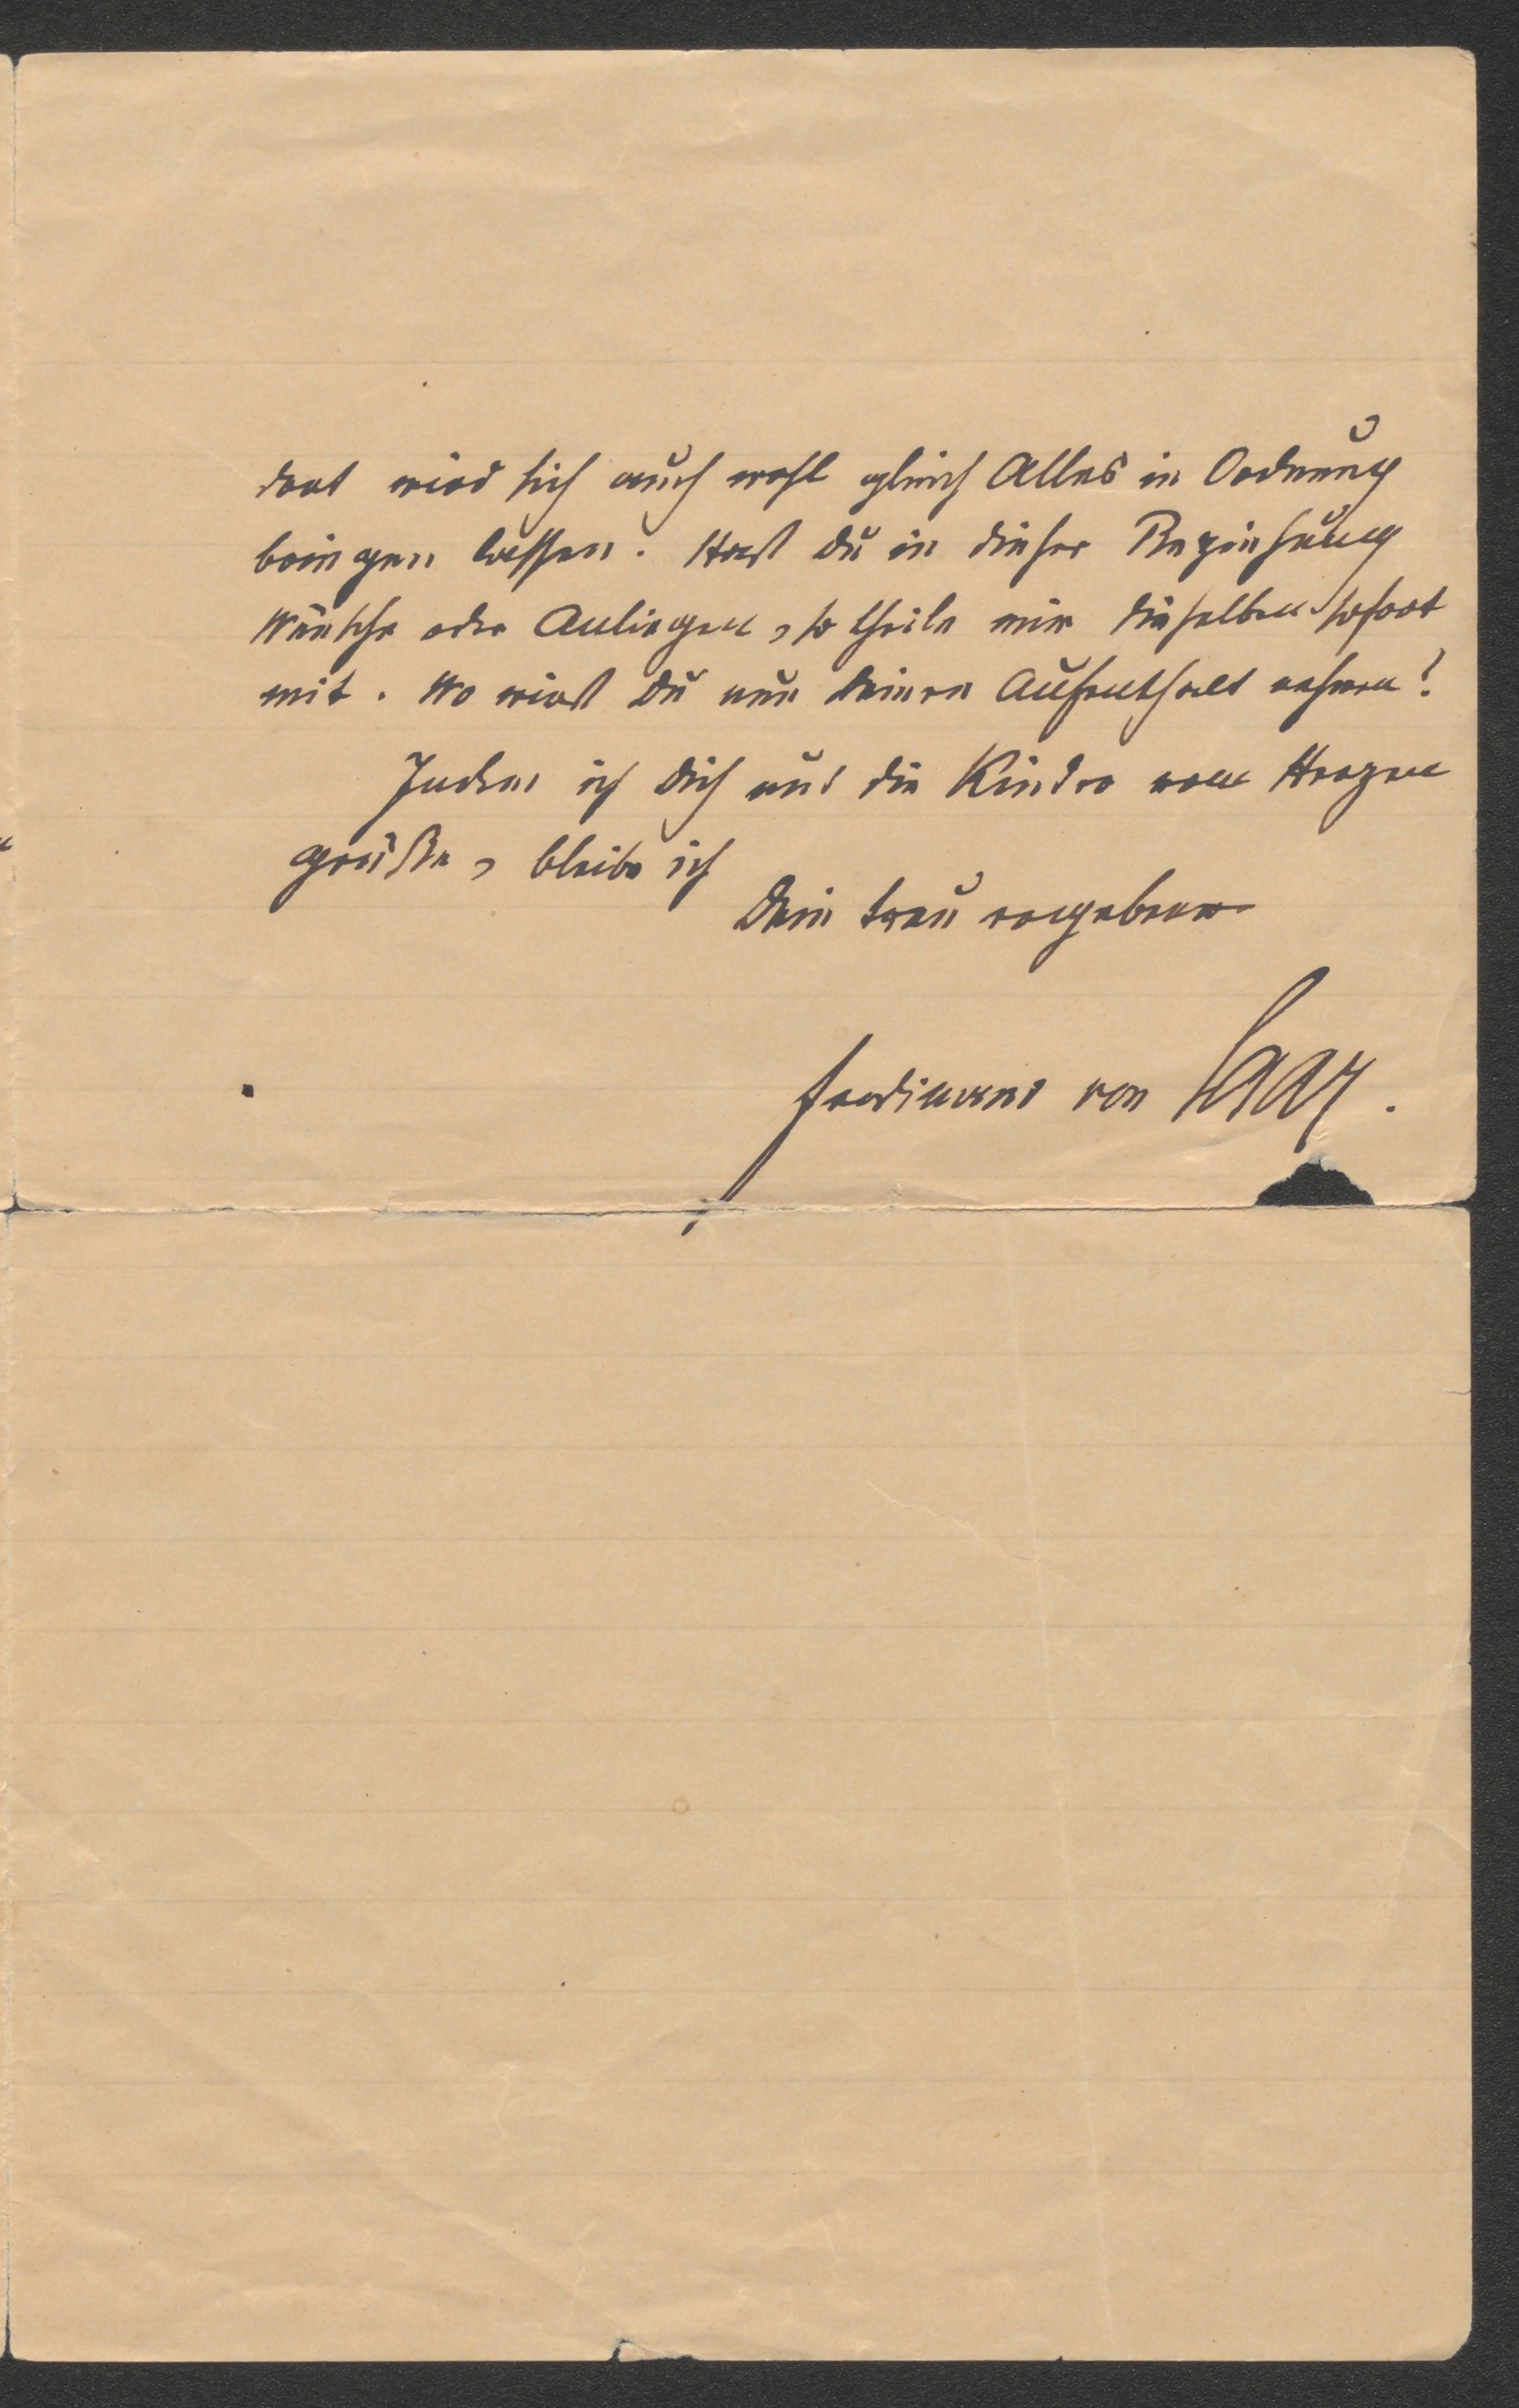 dort wird sich auch wohl gleich Alles in Ordnung
bringen lassen. Hast Du in dieser Beziehung
Wünsche oder Anliegen, so theile mir dieselben sofort
mit. Wo wirst Du nun Deinen Aufenthalt nehmen?
Indem ich Dich und die Kinder vom Herzen
grüße, bleibe ich
Dein treu ergebener
Ferdinand von Saar.